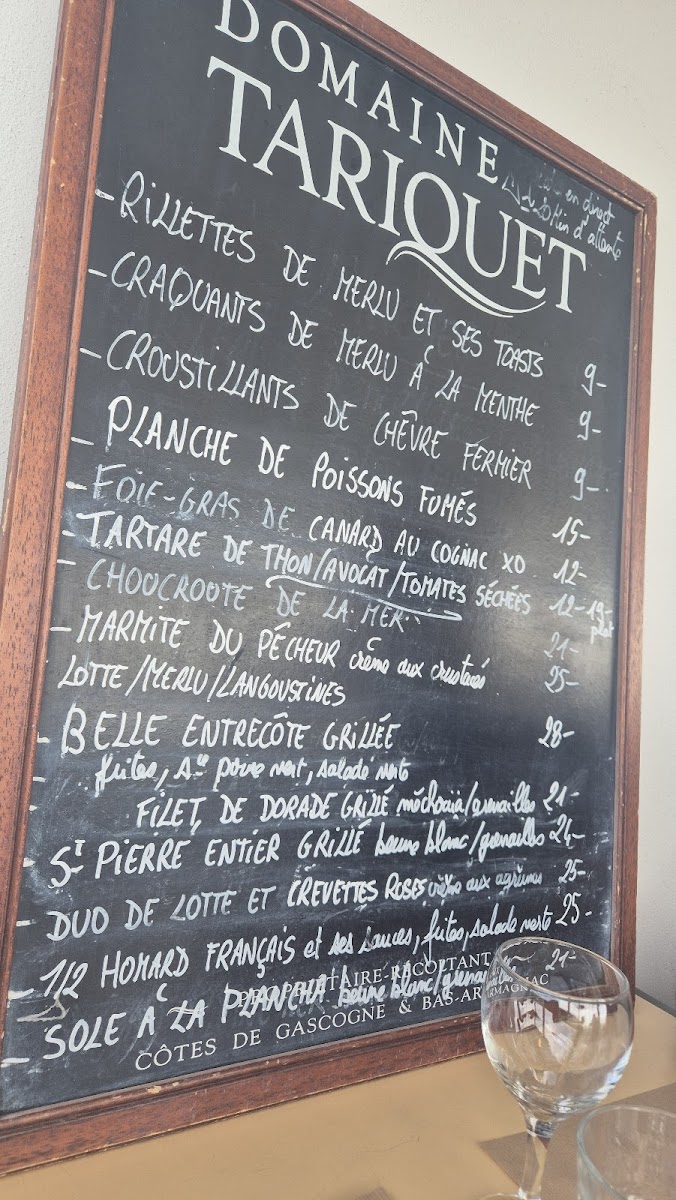 DOMAINE
TARIQUET
en direct
20 Min d'attente
- RILLETTES DE MERLU ET SES TOASTS 9-
- CRAQUANTS DE MERLU À LA MENTHE 9-
- CROUSTILLANTS DE CHÊVRE FERMIER 9-
PLANCHE DE POISSONS FUMÉS 15-
- FOIE-GRAS DE CANARD AU COGNAC XO 12-
- TARTARE DE THON/AVOCAT/TOMATES SÉCHÉES 12- 19-
plat
- CHOUCROUTE DE LA MER 21-
- MARMITE DU PÉCHEUR crème aux crustacés 25-
LOTTE/MERLU/LANGOUSTINES
- BELLE ENTRECÔTE GRILLÉE 28-
frites, sce poivre vert, salade verte
- FILET DE DORADE GRILLÉ méchouia/grenailles 21-
- ST PIERRE ENTIER GRILLÉ beurre blanc/grenailles 24-
- DUO DE LOTTE ET CREVETTES ROSES crème aux agrumes 25-
- 1/2 HOMARD FRANÇAIS et ses sauces, frites, salade verte 25-
- SOLE À LA PLANCHA beurre blanc/grenailles 21-
PROPRIÉTAIRE-RÉCOLTANT
CÔTES DE GASCOGNE & BAS-ARMAGNAC